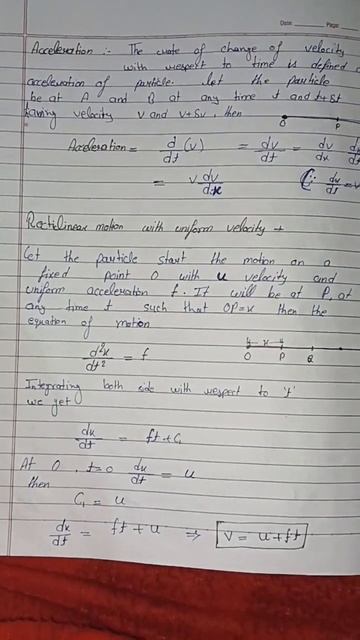 Date Page
Acceleration :- The rate of change of velocity
with respect to time is defined
acceleration of particle. Let the particle
be at A and B at any time t and t+δt
having velocity v and v+δv, then
O P
Acceleration = d/dt (v) = dv/dt = dv/dx
= v dv/dx (∵ dx/dt = v
Rectilinear motion with uniform velocity →
Let the particle start the motion on a
fixed point O with u velocity and
uniform acceleration f. It will be at P, at
any time t such that OP=x then the
equation of motion
x
O P Q
d²x/dt² = f
Integrating both side with respect to 't'
we get
dx/dt = ft + C₁
At O, t=0 dx/dt = u
then
C₁ = u
dx/dt = ft + u ⇒ V = u + ft